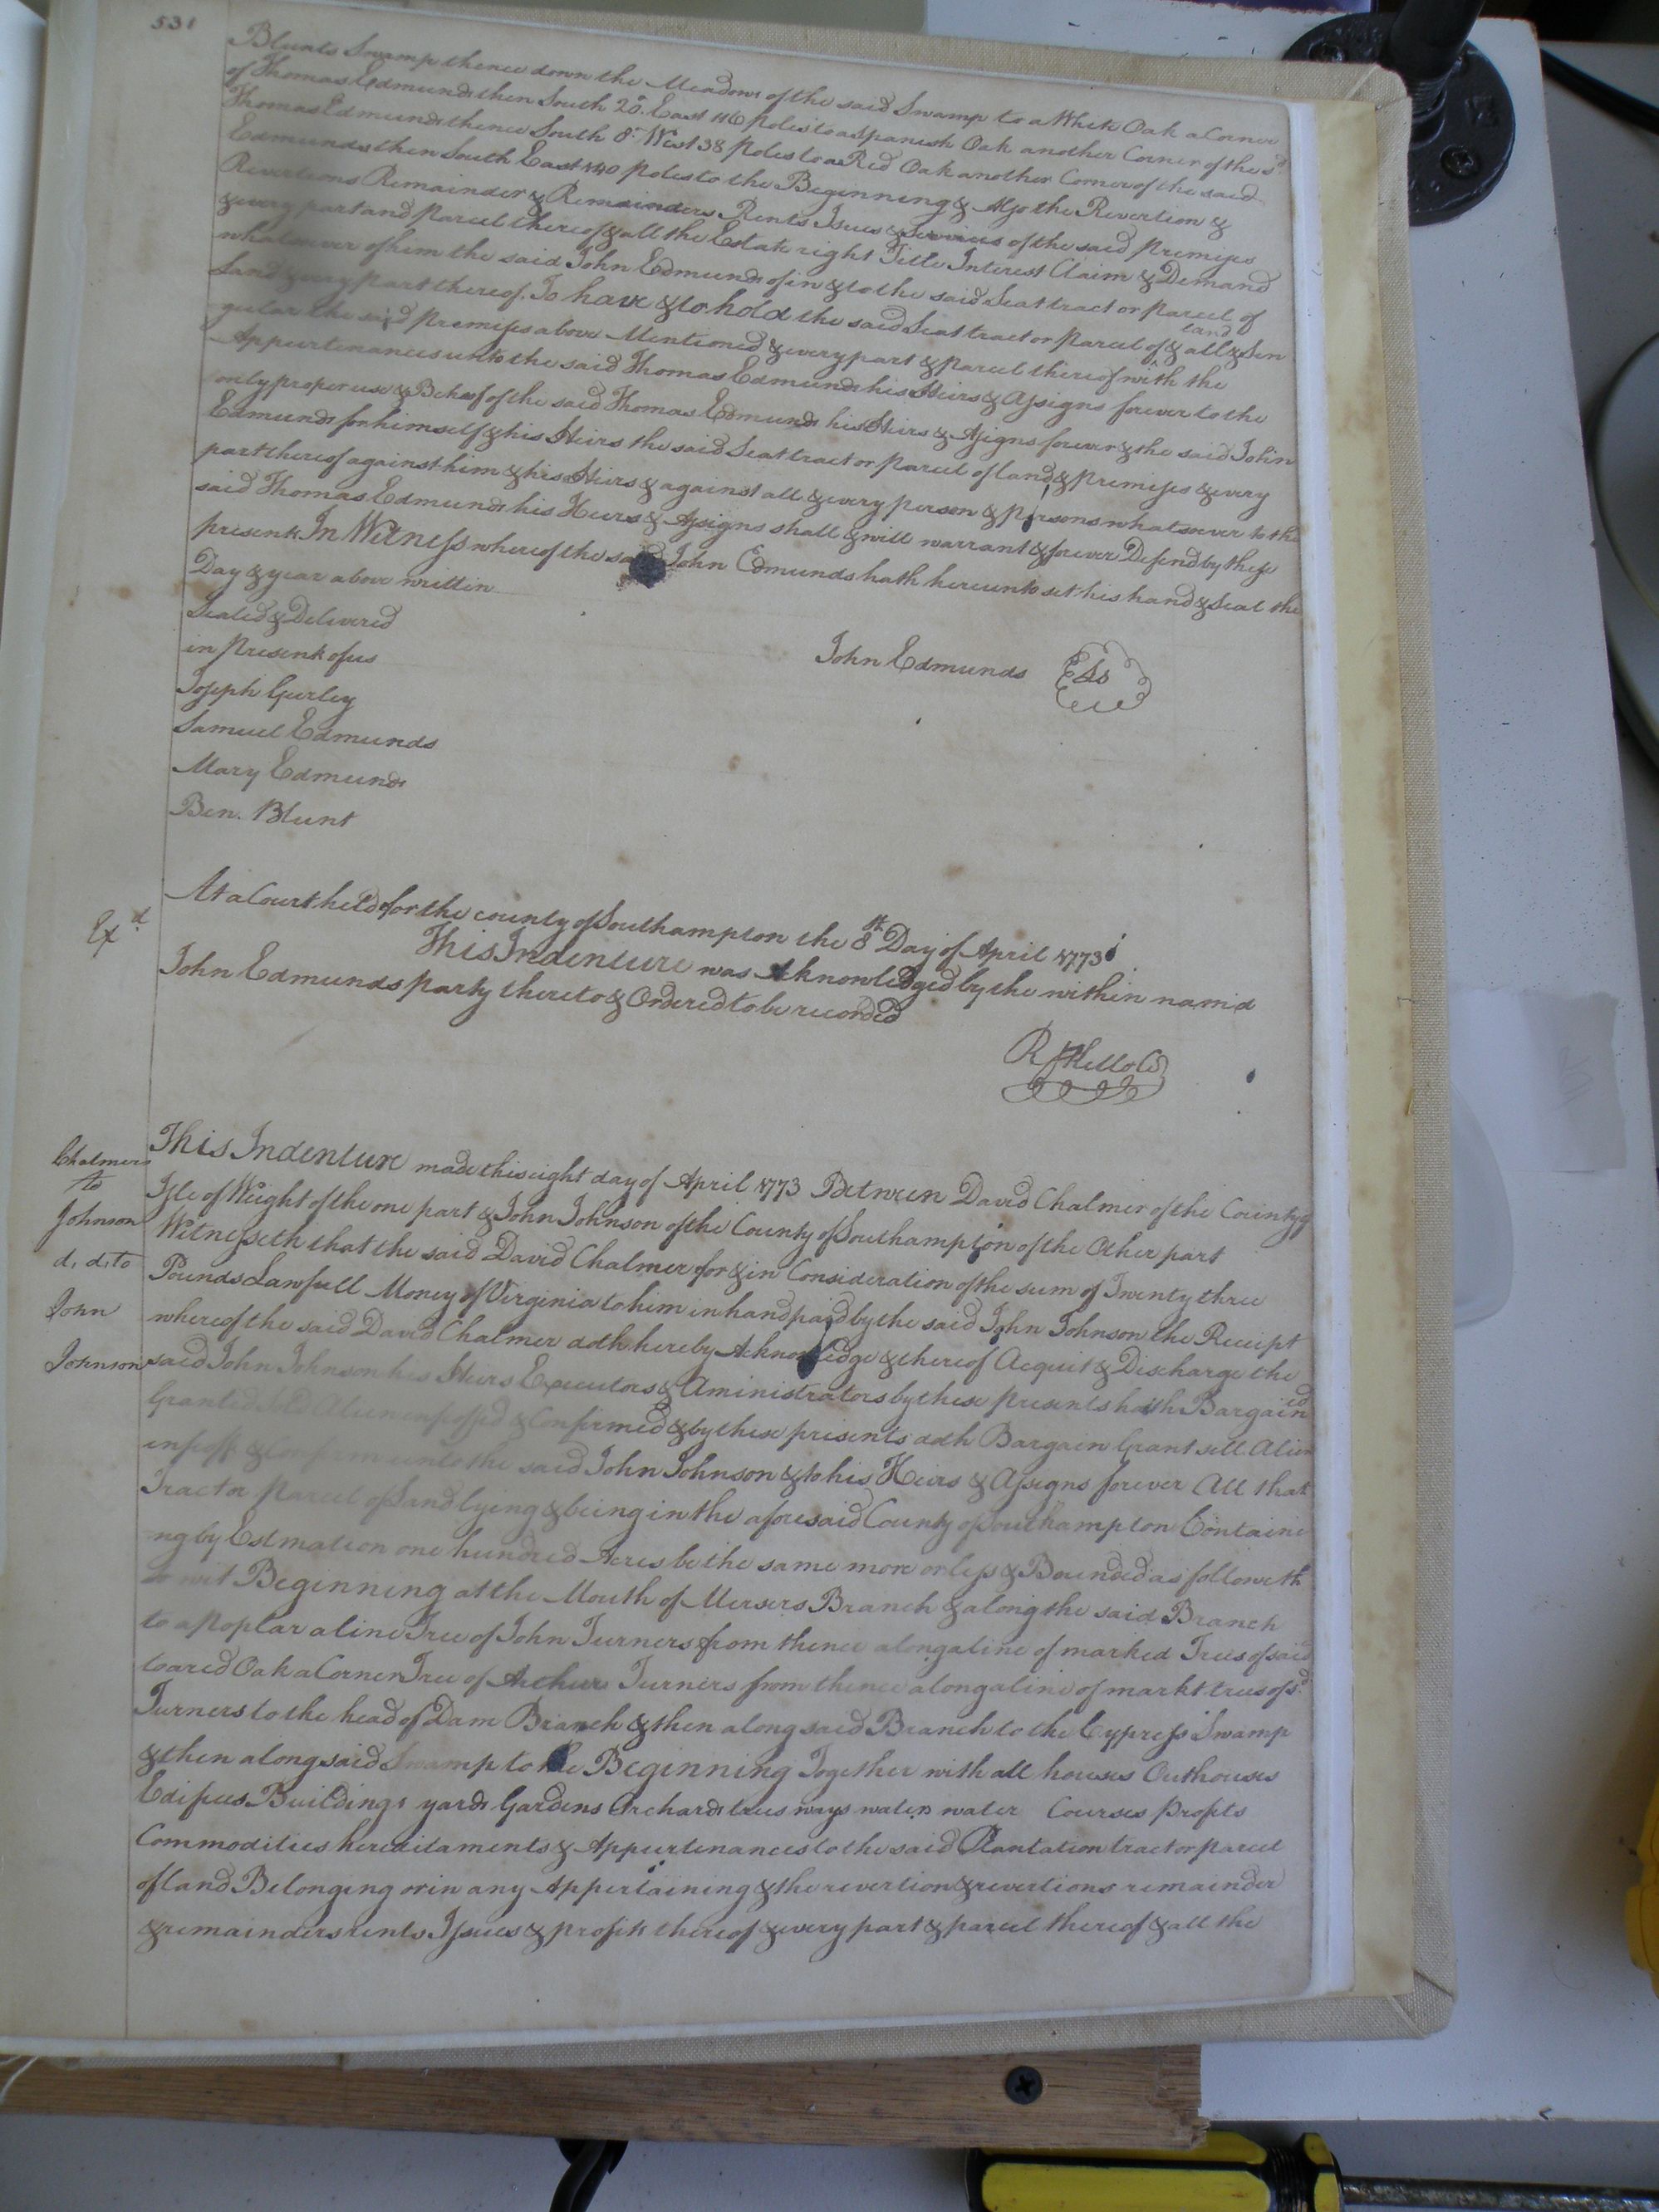 531
Blunts Swamp thence down the Meadows of the said Swamp to a White Oak a Corner
of Thomas Edmunds then South 20° East 116 poles to a Spanish Oak another Corner of the sd
Thomas Edmunds thence South 8° West 38 poles to a Red Oak another Corner of the said
Edmunds then South East 140 poles to the Beginning & Also the Revertion &
Revertions Remainder & Remainders Rents Issues & Services of the said premises
& every part and parcel thereof & all the Estate right Title Interest Claim & Demand
whatsoever of him the said John Edmunds of in & to the said Seat tract or parcel of
Land & every part thereof. To have & to hold the said Seat tract or parcel of land & all & Sin
gular the said premises above Mentioned & every part & parcel thereof with the
Appurtenances unto the said Thomas Edmunds his Heirs & Assigns forever to the
only proper use & Behoof of the said Thomas Edmunds his Heirs & Assigns forever & the said John
Edmunds for himself & his Heirs the said Seat tract or parcel of land & premises & every
part thereof against him & his Heirs & against all & every person & persons whatsoever to the
said Thomas Edmunds his Heirs & Assigns shall & will warrant & forever Defend by these
presents In Witness whereof the said John Edmunds hath hereunto set his hand & Seal the
Day & year above written
Sealed & Delivered
in presents of us
John Edmunds
Joseph Gurley
Samuel Edmunds
Mary Edmunds
Ben. Blunt
Exd
At a Court held for the county of Southampton the 8th Day of April 1773
This Indenture was Acknowledged by the within named
John Edmunds party thereto & Ordered to be recorded
This Indenture made this eight day of April 1773 Between David Chalmer of the County of
Chalmers
to
Johnson
d. d. to
John
Johnson
Isle of Weight of the one part & John Johnson of the County of Southampton of the Other part
Witnesseth that the said David Chalmer for & in Consideration of the sum of Twenty three
Pounds Lawfull Money of Virginia to him in hand paid by the said John Johnson the Receipt
whereof the said David Chalmer doth hereby Acknowledge & thereof Acquit & Discharge the
said John Johnson his Heirs Executors & Aministrators by these presents hath Bargained
Granted Sold Alien & Confirmed & by these presents doth Bargain Grant sell Alien
infeoff & Confirm unto the said John Johnson & to his Heirs & Assigns forever All that
Tract or parcel of Land lyeng & being in the aforesaid County of Southampton Containi
ng by Estmation one hundred Acres be the same more or less & Bounded as followeth
to wit Beginning at the Mouth of Mersers Branch & along the said Branch
to a poplar a line Tree of John Turners from thence along a line of marked Trees of said
to a red Oak a Corner Tree of Arthur Turners from thence along a line of markt trees of sd
Turners to the head of Dam Branch & then along said Branch to the Cypress Swamp
& then along said Swamp to the Beginning Together with all houses Outhouses
Edifices Buildings yards Gardens Orchards trees ways waters water Courses profits
Commodities hereditaments & Appurtenances to the said Plantation tract or parcel
of land Belonging or in any Appertaining & the revertion & revertions remainder
& remainders rents Issues & profits thereof & every part & parcel thereof & all the